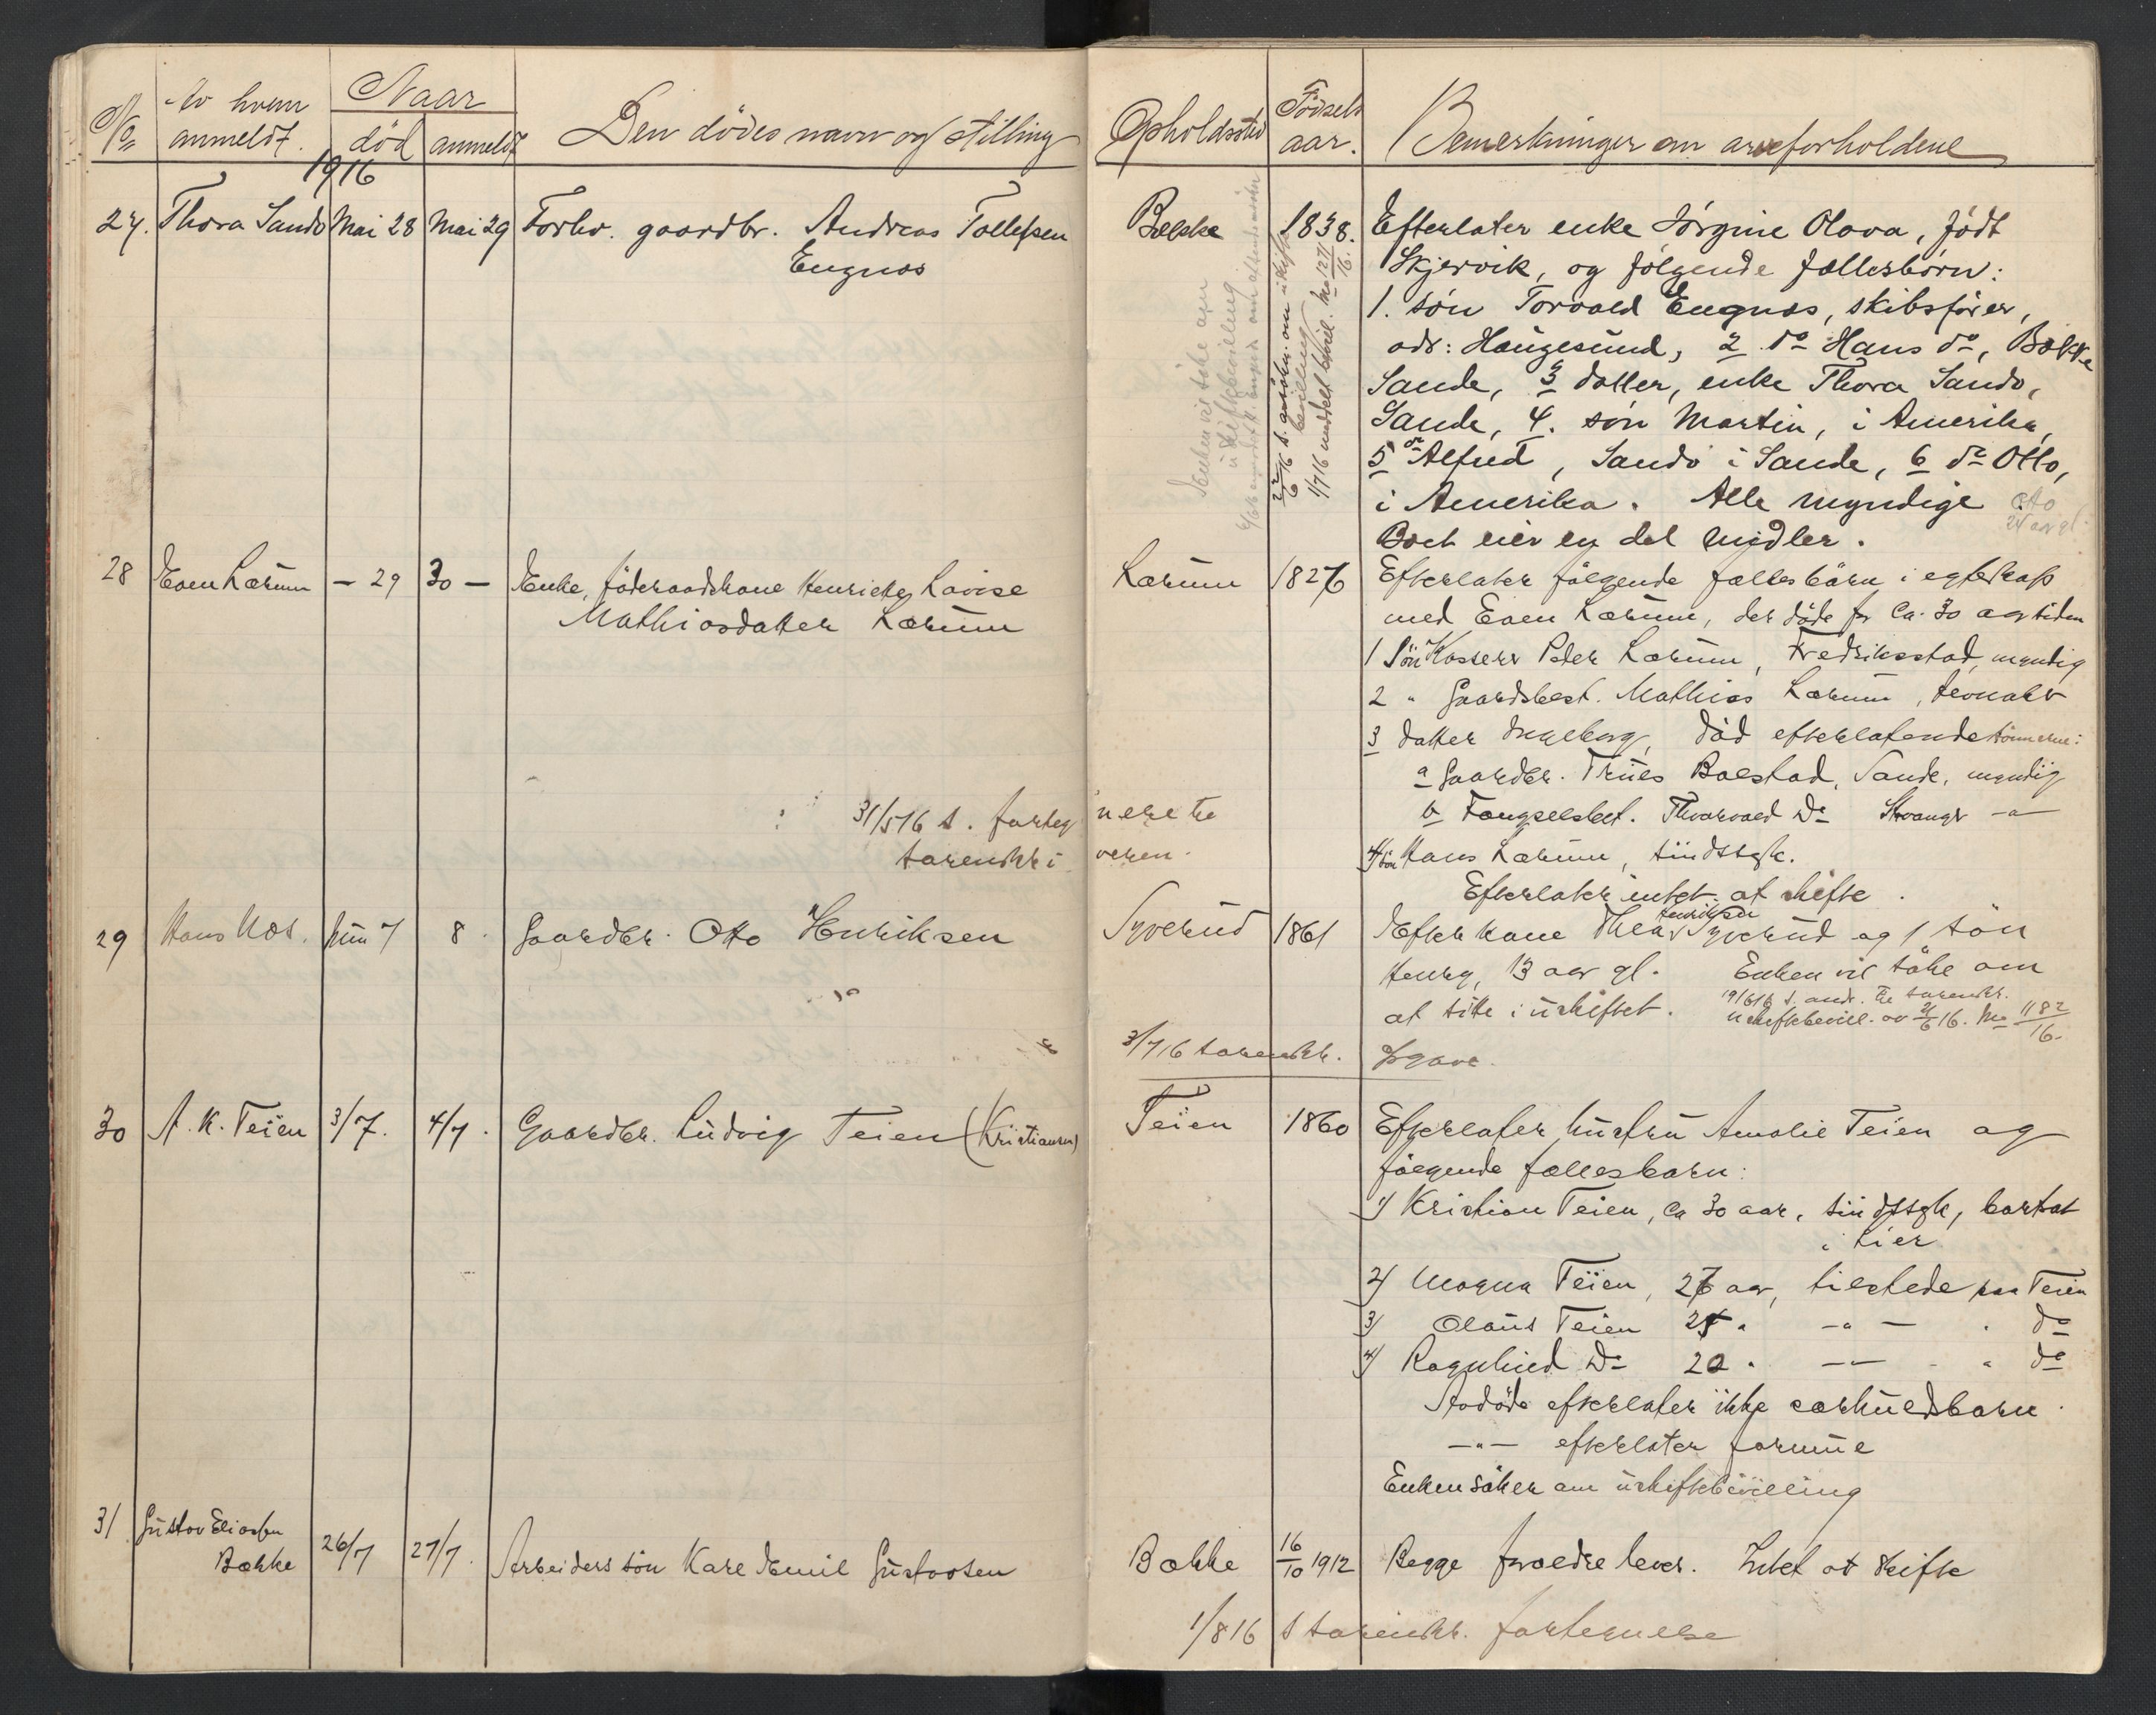 No
Av hvem anmeldt.
Naar
død
anmeldt
Den dødes navn og stilling
Opholdssted
Fødsels aar.
Bemerkninger om arveforholdene
1916
27. Thora Sando Mai 28 Mai 29 Forhv. gaardbr. Andreas Tollefsen
Engnæs
Bække 1838. Efterlater enke Jørgine Olava, født
Skjervik, og følgende fællesbørn:
1. søn Torvald Engnæs, skibsfører,
adr: Haugesund, 2 do Hans do, Bække
Sande, 3 datter, enke Thora Sando,
Sande, 4. søn Martin, i Amerika,
5 do Alfred, Sando i Sande, 6 do Otto,
i Amerika. Alle myndige
Boet eier en del midler.
Enken vil søke om
uskiftebevilling
bevilling
1/7 16 meddelt bevil. No 1271/16.
28 Even Lærum - 29 30 - Enke, føderaadskone Henriette Lovise
Mathiasdatter Lærum
Lærum 1826 Efterlater følgende fællesbarn i egteskap
med Even Lærum, der døde for ca. 30 aar siden
1 Søn Kasserer Peder Lærum, Fredriksstad, myndig
2 " Gaardsbest. Mathias Lærum,
3 datter Ingeborg, død efterlatende sønnerne:
a Gaardbr. Truls Bolstad, Sande, myndig
b Fængselsbet. Thorvald Do Stavanger -"-
4 søn Hans Lærum, sindssyk.
Efterlater intet at skifte.
31/5 16 s. forteg nelse til
sorenskri veren.
29 Hans Næs. Juni 7 8. Gaardbr. Otto Henriksen
Syverud 1861 Efterl. kone Thea Henriksen Syverud og 1 søn
Henry, 13 aar gl. Enken vil søke om
at sitte i uskiftet.
19/6 16 s. and. til sorenskr.
uskiftebevill. av 21/6 16. No 1182/16.
3/7 16 sorenskr. opgave.
30 A. K. Teien 3/7. 4/7. Gaardbr. Ludvig Teien (Kristiansen)
Teien 1860 Efterlater hustru Amalie Teien og
følgende fællesbarn:
1) Kristian Teien, ca 30 aar, sindssyk, bortsat
i Lier
2) Magna Teien, 26 aar, tilstede paa Teien
3) Olaus Teien 25 " -"- " do
4) Ragnhild Do 20 " -"- " do
Avdøde efterlater ikke særkuldsbarn.
-"- efterlater formue
Enken søker om uskiftebevilling
31 Gustav Eliassen
Bække 26/7 27/7. Arbeiders søn Karl Emil Gustavsen
Bække 16/10 1912 Begge forældre lever. Intet at skifte
1/8 16 s sorenskr. fortegnelse